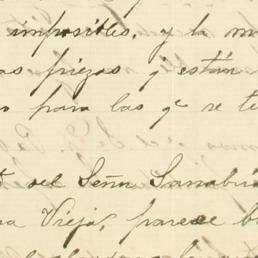 imposibles, y la m
as piezas y están
o para las qe se te
del Señor Sanabria
a Vieja, parece b